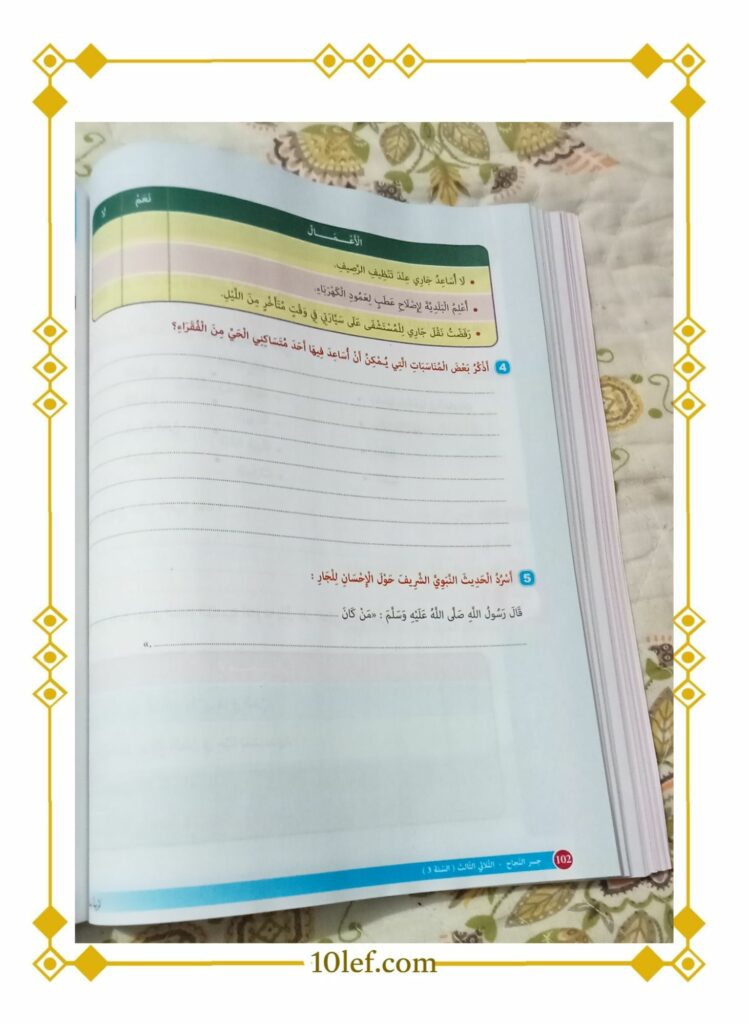 الْأَعْـــمَـــالُ نَعَمْ لَا
• لَا أُسَاعِدُ جَارِي عِنْدَ تَنْظِيفِ الرَّصِيفِ.
• أُعْلِمُ الْبَلَدِيَّةَ لِإِصْلَاحِ عَطَبٍ لِعَمُودِ الْكَهْرَبَاءِ.
• رَفَضْتُ نَقْلَ جَارِي لِلْمُسْتَشْفَى عَلَى سَيَّارَتِي فِي وَقْتٍ مُتَأَخِّرٍ مِنَ اللَّيْلِ.
4 أَذْكُرُ بَعْضَ الْمُنَاسَبَاتِ الَّتِي يُـمْكِنُ أَنْ أُسَاعِدَ فِيهَا أَحَدَ مُتَسَاكِنِي الْحَيِّ مِنَ الْفُقَرَاءِ؟
5 أَسْرُدُ الْحَدِيثَ النَّبَوِيَّ الشَّرِيفَ حَوْلَ الْإِحْسَانِ لِلْجَارِ :
قَالَ رَسُولُ اللَّهِ صَلَّى اللَّهُ عَلَيْهِ وَسَلَّمَ : «مَنْ كَانَ
.»
102 جسر النجاح - الثلاثي الثالث ( السنة 3 )
10lef.com